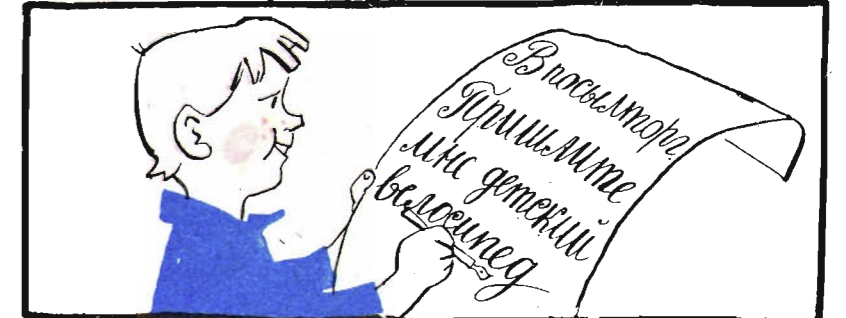 В посылторг.
Пришлите
мне детский
велосипед